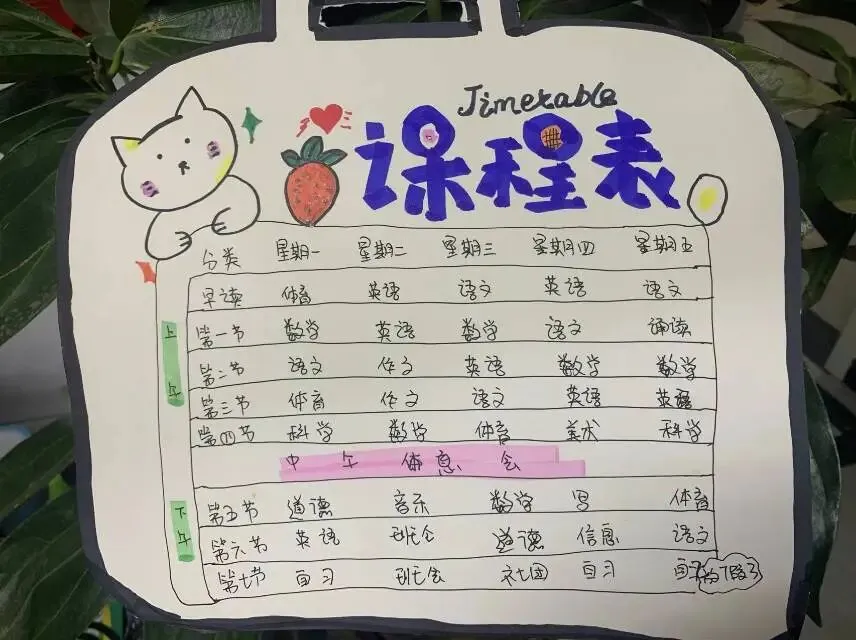 Timetable
课程表
分类 星期一 星期二 星期三 星期四 星期五
上午
早读 体育 英语 语文 英语 语文
第一节 数学 英语 数学 语文 诵读
第二节 语文 作文 英语 数学 数学
第三节 体育 作文 语文 英语 英语
第四节 科学 数学 体育 美术 科学
中午休息会
下午
第五节 道德 音乐 数学 写 体育
第六节 英语 班会 道德 信息 语文
第七节 自习 班会 社团 自习 自习
放假了